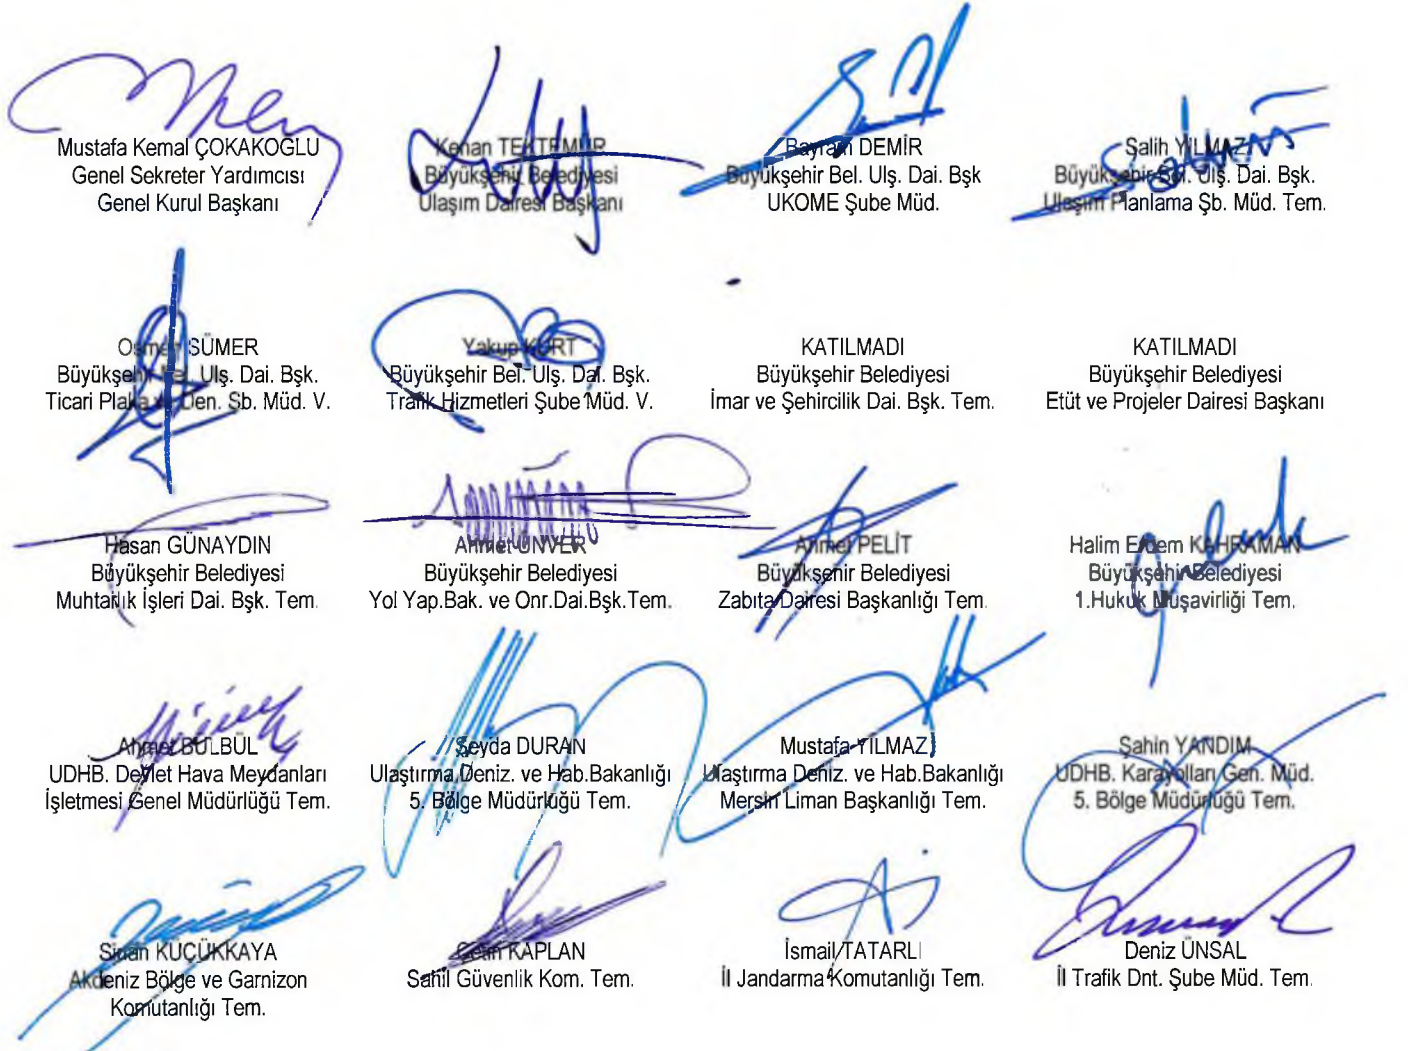 Mustafa Kemal ÇOKAKOĞLU
Genel Sekreter Yardımcısı
Genel Kurul Başkanı
Kenan TEKTEMUR
Büyükşehir Belediyesi
Ulaşım Dairesi Başkanı
Bayram DEMİR
Büyükşehir Bel. Ulş. Dai. Bşk
UKOME Şube Müd.
Salih YILMAZ
Büyükşehir Bel. Ulş. Dai. Bşk.
Ulaşım Planlama Şb. Müd. Tem.
Osman SÜMER
Büyükşehir Bel. Ulş. Dai. Bşk.
Ticari Plaka ve Den. Şb. Müd. V.
Yakup KURT
Büyükşehir Bel. Ulş. Dai. Bşk.
Trafik Hizmetleri Şube Müd. V.
KATILMADI
Büyükşehir Belediyesi
İmar ve Şehircilik Dai. Bşk. Tem.
KATILMADI
Büyükşehir Belediyesi
Etüt ve Projeler Dairesi Başkanı
Hasan GÜNAYDIN
Büyükşehir Belediyesi
Muhtarlık İşleri Dai. Bşk. Tem.
Ahmet ÜNVER
Büyükşehir Belediyesi
Yol Yap.Bak. ve Onr.Dai.Bşk.Tem.
Ahmet PELİT
Büyükşehir Belediyesi
Zabıta Dairesi Başkanlığı Tem.
Halim Erdem KAHRAMAN
Büyükşehir Belediyesi
1.Hukuk Müşavirliği Tem.
Ahmet BÜLBÜL
UDHB. Devlet Hava Meydanları
İşletmesi Genel Müdürlüğü Tem.
Şeyda DURAN
Ulaştırma Deniz. ve Hab.Bakanlığı
5. Bölge Müdürlüğü Tem.
Mustafa YILMAZ
Ulaştırma Deniz. ve Hab.Bakanlığı
Mersin Liman Başkanlığı Tem.
Şahin YANDIM
UDHB. Karayolları Gen. Müd.
5. Bölge Müdürlüğü Tem.
Sinan KÜÇÜKKAYA
Akdeniz Bölge ve Garnizon
Komutanlığı Tem.
KAPLAN
Sahil Güvenlik Kom. Tem.
İsmail TATARLI
İl Jandarma Komutanlığı Tem.
Deniz ÜNSAL
İl Trafik Dnt. Şube Müd. Tem.